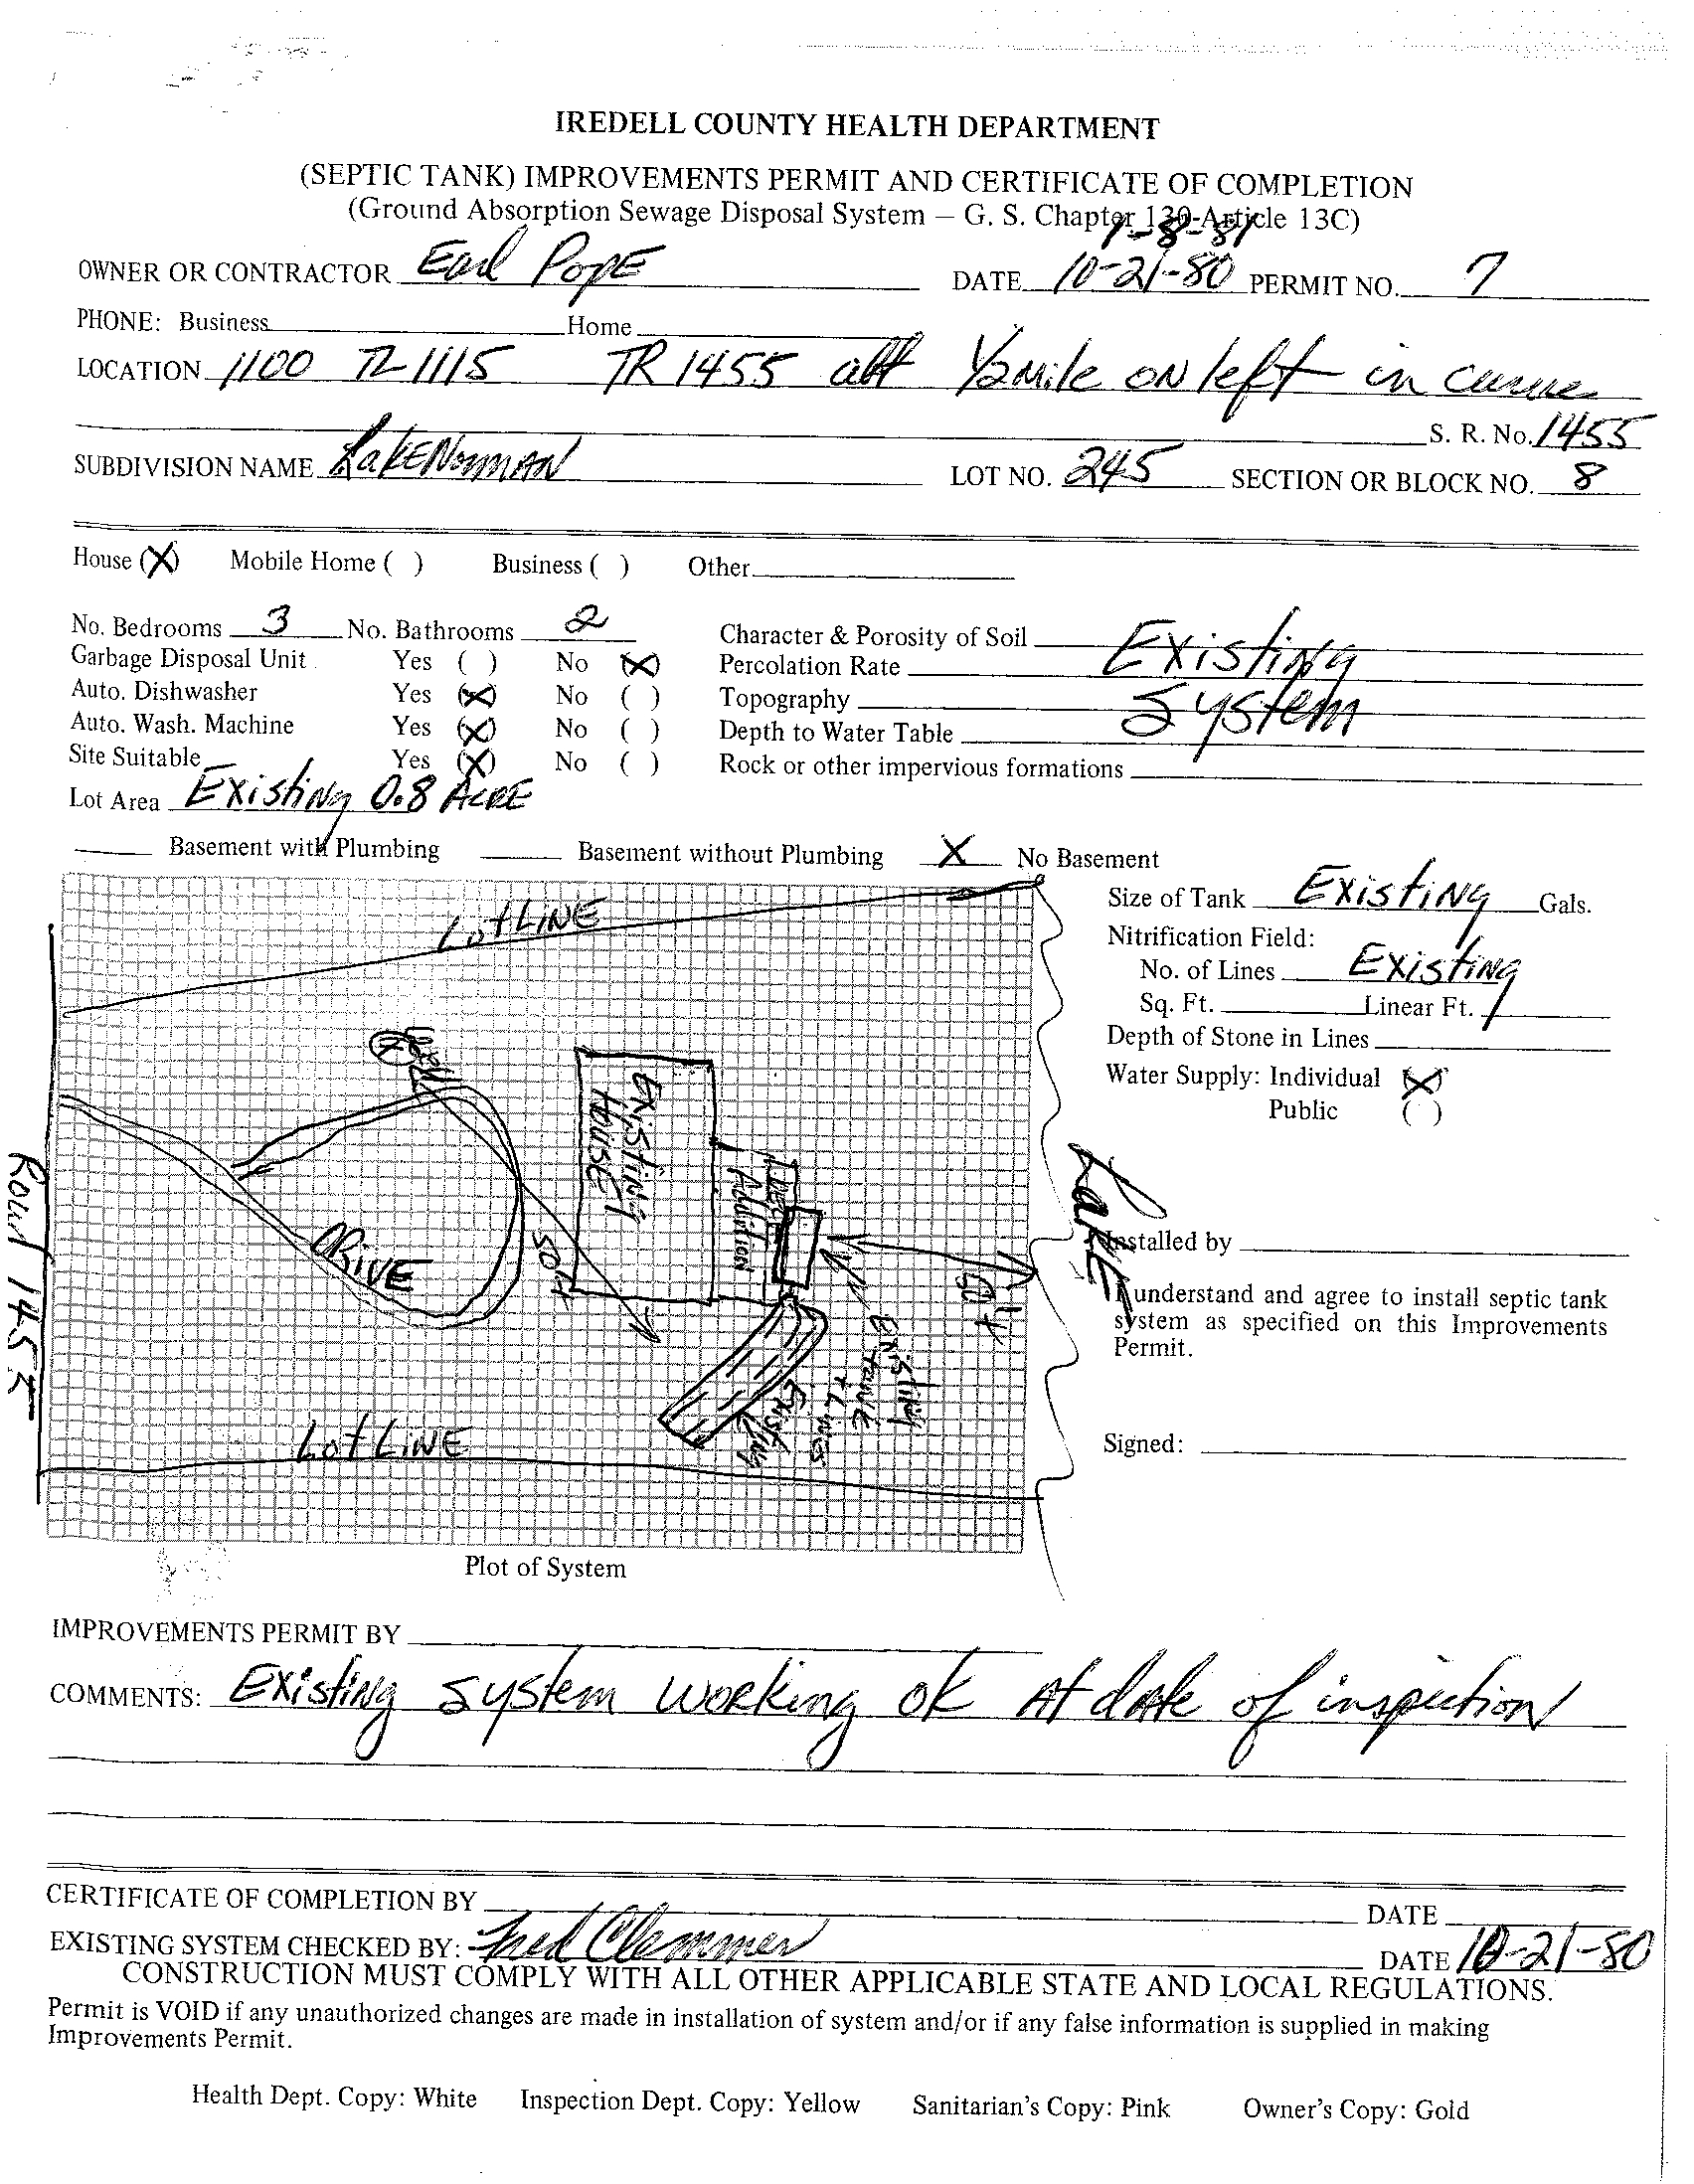 IREDELL COUNTY HEALTH DEPARTMENT
(SEPTIC TANK) IMPROVEMENTS PERMIT AND CERTIFICATE OF COMPLETION
(Ground Absorption Sewage Disposal System — G. S. Chapter 130-Article 13C)
1-8-81
OWNER OR CONTRACTOR Earl Pope DATE 10-21-80 PERMIT NO. 7
PHONE: Business Home
LOCATION 1100 TL 1115 TR 1455 abt 1/2 mile on left in curve
S. R. No. 1455
SUBDIVISION NAME Lake Norman LOT NO. 245 SECTION OR BLOCK NO. 8
House (X) Mobile Home ( ) Business ( ) Other
No. Bedrooms 3 No. Bathrooms 2
Garbage Disposal Unit Yes ( ) No (X)
Auto. Dishwasher Yes (X) No ( )
Auto. Wash. Machine Yes (X) No ( )
Site Suitable Yes (X) No ( )
Lot Area Existing 0.8 Acre
Character & Porosity of Soil Existing
Percolation Rate
Topography System
Depth to Water Table
Rock or other impervious formations
Basement with Plumbing Basement without Plumbing X No Basement
Lot Line
Existing House
Addition
Drive
50 ft
50 ft
Existing tank + Lines
Existing
Lot Line
Road 1455
Lake
Plot of System
Size of Tank Existing Gals.
Nitrification Field:
No. of Lines Existing
Sq. Ft. Linear Ft.
Depth of Stone in Lines
Water Supply: Individual (X)
Public ( )
Installed by
I understand and agree to install septic tank
system as specified on this Improvements
Permit.
Signed:
IMPROVEMENTS PERMIT BY
COMMENTS: Existing system working ok at date of inspection
CERTIFICATE OF COMPLETION BY DATE
EXISTING SYSTEM CHECKED BY: Fred Clemmer DATE 10-21-80
CONSTRUCTION MUST COMPLY WITH ALL OTHER APPLICABLE STATE AND LOCAL REGULATIONS.
Permit is VOID if any unauthorized changes are made in installation of system and/or if any false information is supplied in making
Improvements Permit.
Health Dept. Copy: White Inspection Dept. Copy: Yellow Sanitarian's Copy: Pink Owner's Copy: Gold